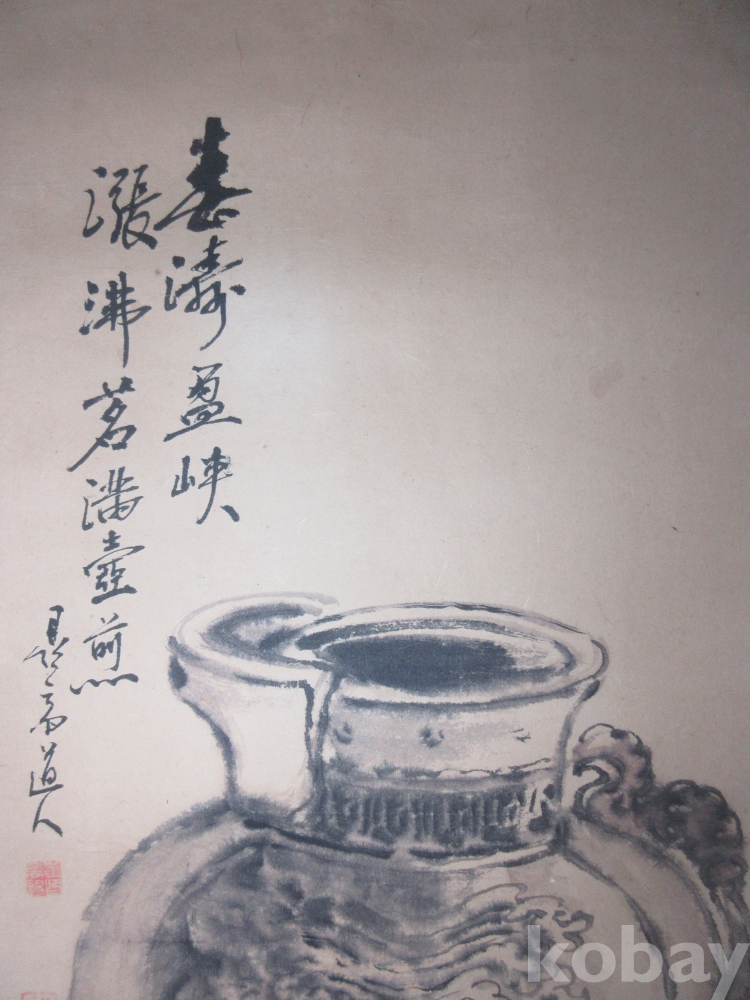 春濤盈峽
漲沸茗滿壺煎
道人
kobay